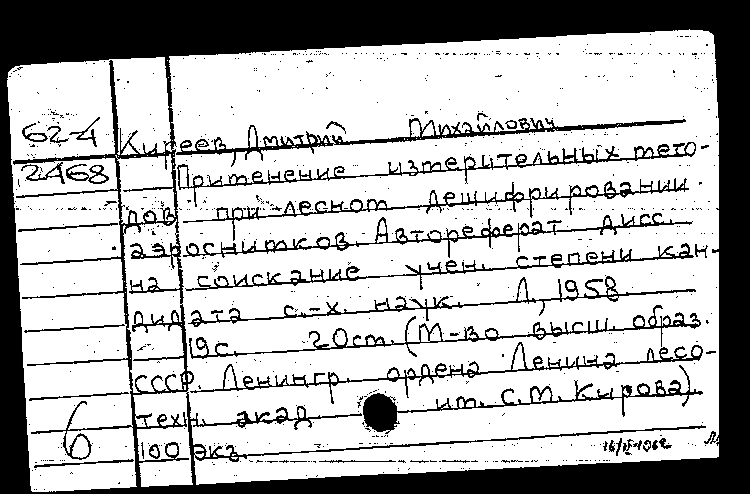 62-4 Киреев, Дмитрий Михайлович
2468 Применение измерительных мето-
дов при лесном дешифрировании
аэроснимков. Автореферат дисс.
на соискание учен. степени кан-
дидата с.-х. наук. Л., 1958
19с. 20см. (М-во высш. образ.
СССР. Ленингр. ордена Ленина лесо-
техн. акад им. С.М. Кирова).
6 100 экз.